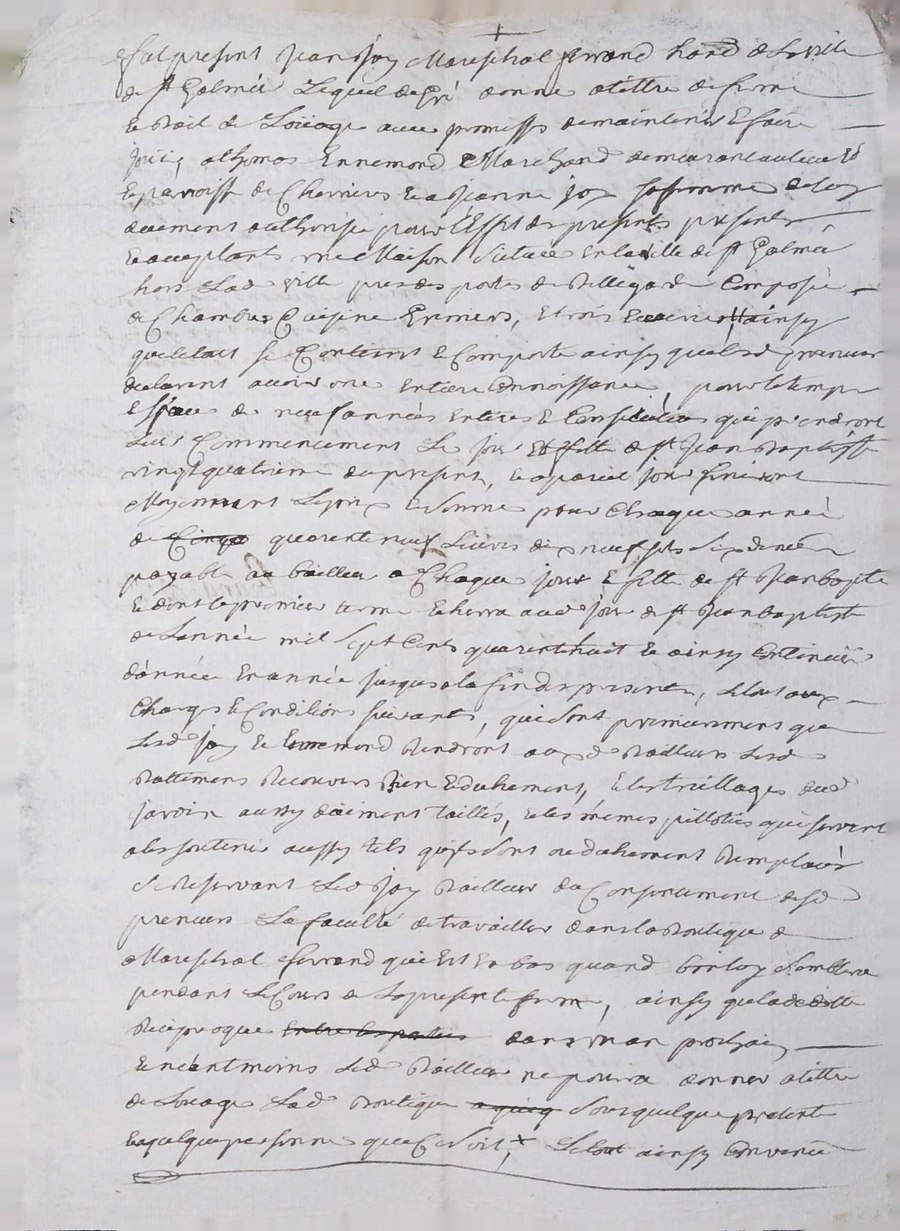 Fut present Jean Joy Mareschal ferrand hors de la ville
de St Galmier Lequel de gré donne a tiltre de ferme
le Bail de Loüage avec promesse de maintenir et faire
Joüir, a thomas Ennemond Marchand demeurant au lieu et
et parroisse de Chevrieres et a Jeanne Joy sa femme de luy
deuement authorisée pour l'Effet des presentes presents
et acceptants une Maison scituée en la ville de St Galmier
hors Lade ville pres des portes de Bellegarde Composée
de Chambre Cuisine Greniers, et trois ainsy
que le tout se Contient et Comporte ainsy que lesd preneurs
declarent avoir une entiere connoissance, pour le temps
Espace de neuf années entieres et Consecutives qui prendront
Leur Commencement Le Jour et fette de St Jean Baptiste
vingt quatrieme du present, et a pareil jour finiront
Moyennant Le prix et somme pour Chaque année
de Cinq quarente neuf Livres dix neuf sols six deniers
payable au bailleur a Chaque jour et fette de St Jean bapte
et dont le premier terme Echerra aud jour de St Jean Baptiste
de L'année mil sept Cents quarent'huit et ainsy Continuer
d'année en année jusques a la fin des presentes, Le tout aux
Charges et Conditions suivantes, qui sont premierement que
Lesd Joy et Ennemond Rendront aud Bailleur Lesd
Battimens Recouvers Bien et duhement, et les treillages dud
jardin aussy düement taillés, et les mêmes pillotis qui servent
a les soutenir aussy tels qu'ils sont ou duhement Remplacés
se Reservant Led Joy Bailleur du Consentement desd
preneurs La faculté de travailler dans la Boutique de
Mareschal ferrand qui est en bas quand bon luy semblera
pendant Le Cours de La presente ferme, ainsy que la dedite
Reciproque entre les parties dans un an prochain
et neantmoins Led Bailleur ne pourra donner a tiltre
de Loüage Lade Boutique a quiq sous quelque pretexte
et a quelque personne que Ce soit, Le tout ainsy Convenu